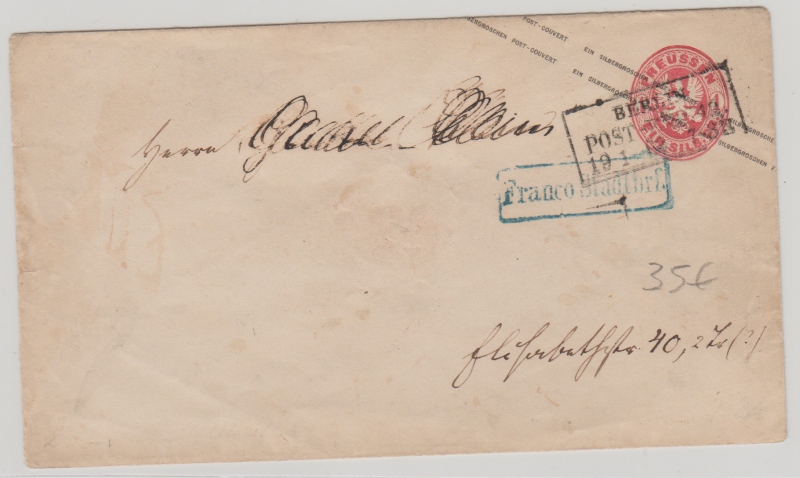 POST-COUVERT EIN SILBERGROSCHEN
SILBERGROSCHEN POST-COUVERT EIN SILBERGROSCHEN
PREUSSEN
EIN SILB.
BERLIN
POST
19 1
Franco Stadtbrf.
Herrn
35€
Elisabethstr. 40, 2 Tr (?)